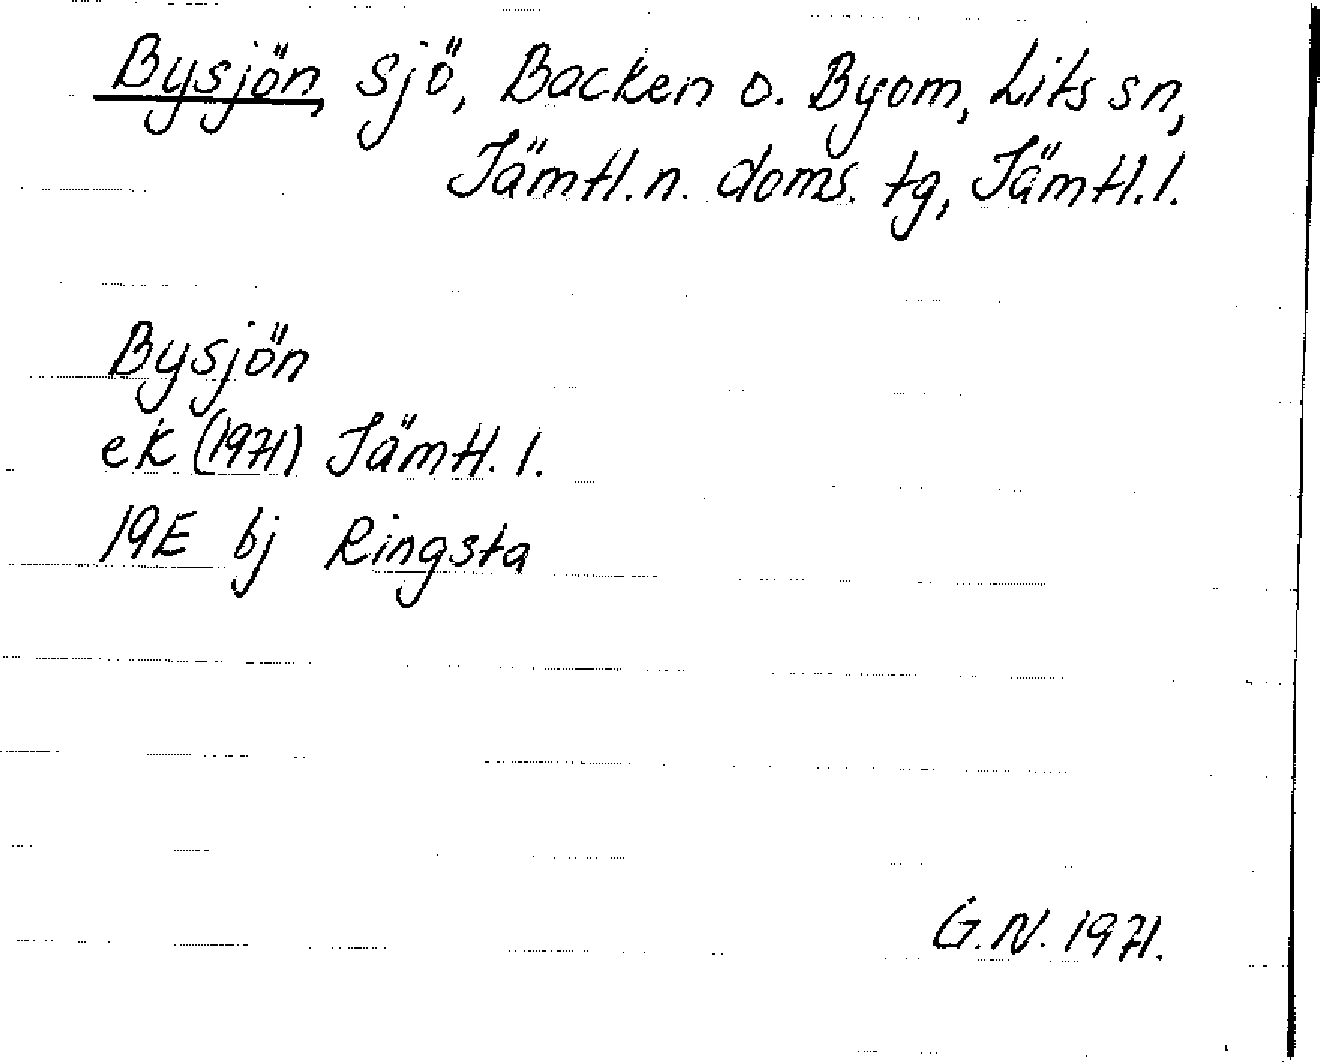 Bysjön, sjö, Backen o. Byom, Lits sn,
Jämtl. n. doms. tg, Jämtl. l.
Bysjön
ek (1971) Jämtl. l.
19E bj Ringsta
G.N. 1971.